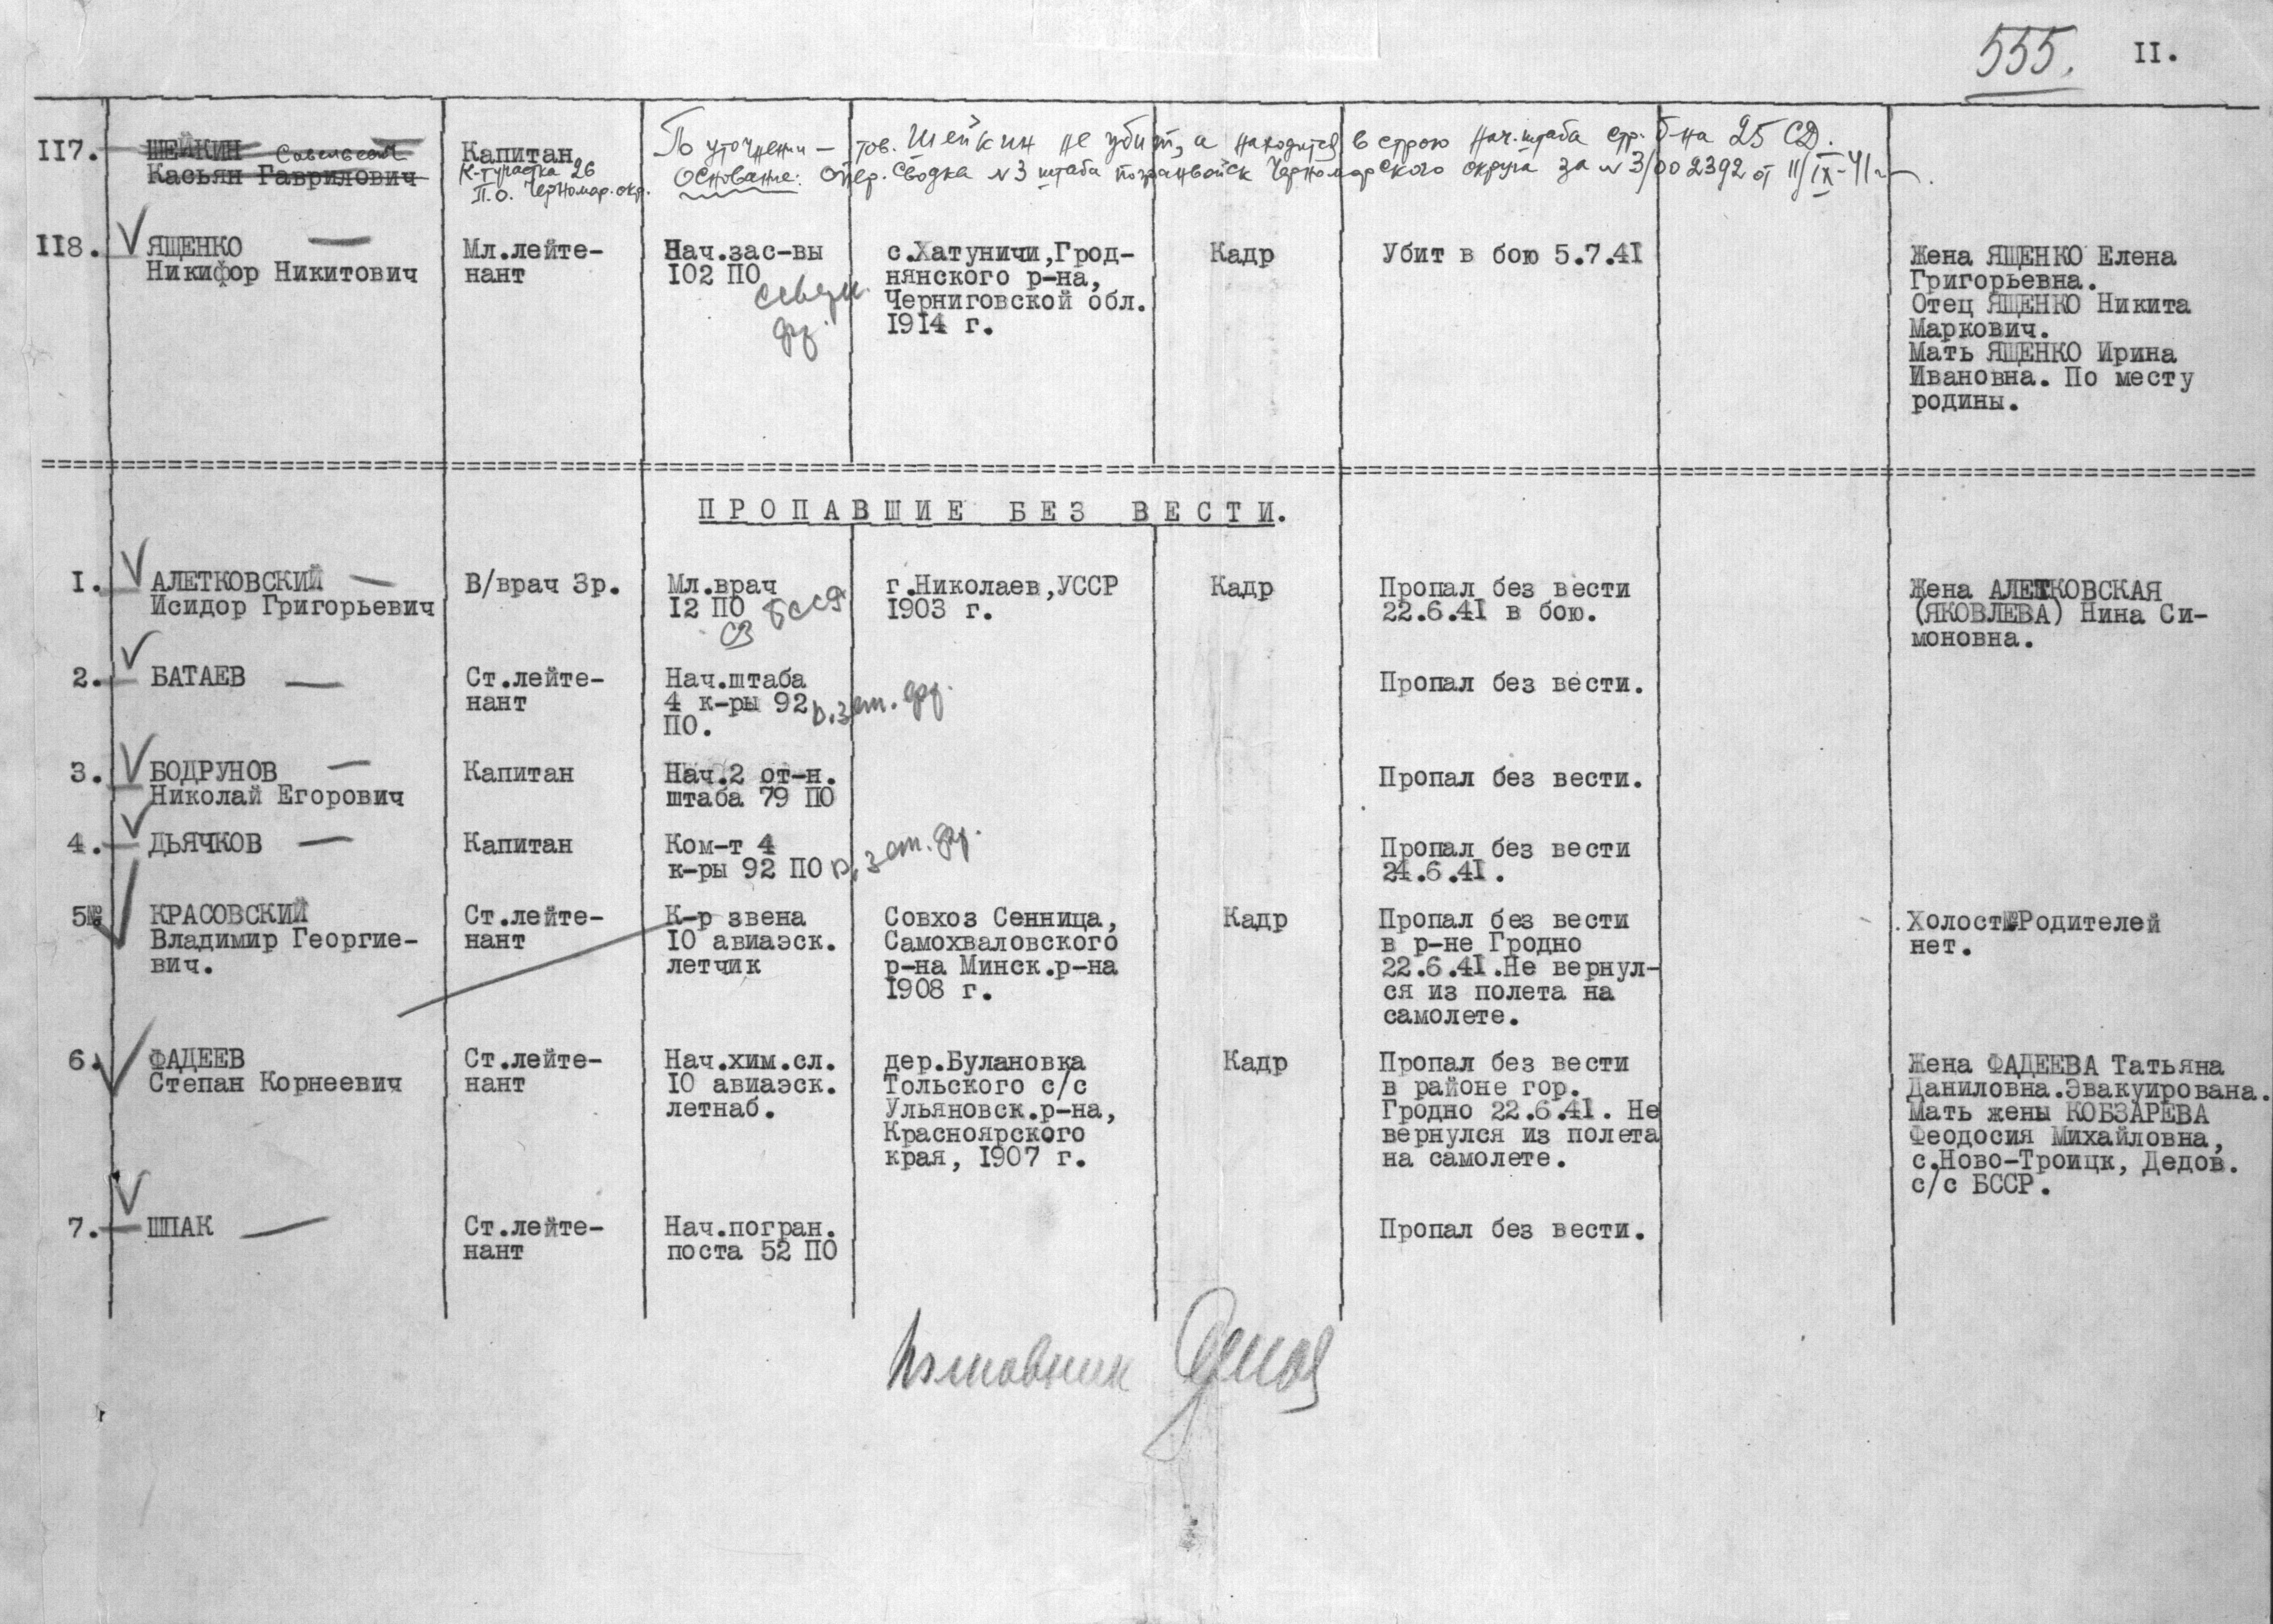 555. II.
II7. ШЕЙКИН
Касьян Гаврилович
Капитан
К-т участка 26
П.О. Черномор.окр.
По уточнении — тов. Шейкин не убит, а находится в строю Нач.штаба стр. б-на 25 СД.
Основание: Опер. Сводка № 3 штаба погранвойск Черноморского округа за № 3/002392 от 11/IX-41 г.
II8. ЯЩЕНКО
Никифор Никитович
Мл.лейте-
нант
Нач.зас-вы
I02 ПО
с.Хатуничи,Грод-
нянского р-на,
Черниговской обл.
I9I4 г.
Кадр
Убит в бою 5.7.4I
Жена ЯЩЕНКО Елена
Григорьевна.
Отец ЯЩЕНКО Никита
Маркович.
Мать ЯЩЕНКО Ирина
Ивановна. По месту
родины.
ПРОПАВШИЕ БЕЗ ВЕСТИ.
I. АЛЕТКОВСКИЙ
Исидор Григорьевич
В/врач 3р.
Мл.врач
I2 ПО
г.Николаев,УССР
I903 г.
Кадр
Пропал без вести
22.6.4I в бою.
Жена АЛЕТКОВСКАЯ
(ЯКОВЛЕВА) Нина Си-
моновна.
2. БАТАЕВ
Ст.лейте-
нант
Нач.штаба
4 к-ры 92
ПО.
Пропал без вести.
3. БОДРУНОВ
Николай Егорович
Капитан
Нач.2 от-н.
штаба 79 ПО
Пропал без вести.
4. ДЬЯЧКОВ
Капитан
Ком-т 4
к-ры 92 ПО
Пропал без вести
24.6.4I.
5№ КРАСОВСКИЙ
Владимир Георгие-
вич.
Ст.лейте-
нант
К-р звена
I0 авиаэск.
летчик
Совхоз Сенница,
Самохваловского
р-на Минск.р-на
I908 г.
Кадр
Пропал без вести
в р-не Гродно
22.6.4I.Не вернул-
ся из полета на
самолете.
Холост№Родителей
нет.
6. ФАДЕЕВ
Степан Корнеевич
Ст.лейте-
нант
Нач.хим.сл.
I0 авиаэск.
летнаб.
дер.Булановка
Тольского с/с
Ульяновск.р-на,
Красноярского
края, I907 г.
Кадр
Пропал без вести
в районе гор.
Гродно 22.6.4I. Не
вернулся из полета
на самолете.
Жена ФАДЕЕВА Татьяна
Даниловна.Эвакуирована.
Мать жены КОБЗАРЕВА
Феодосия Михайловна,
с.Ново-Троицк, Дедов.
с/с БССР.
7. ШПАК
Ст.лейте-
нант
Нач.погран.
поста 52 ПО
Пропал без вести.
Полковник